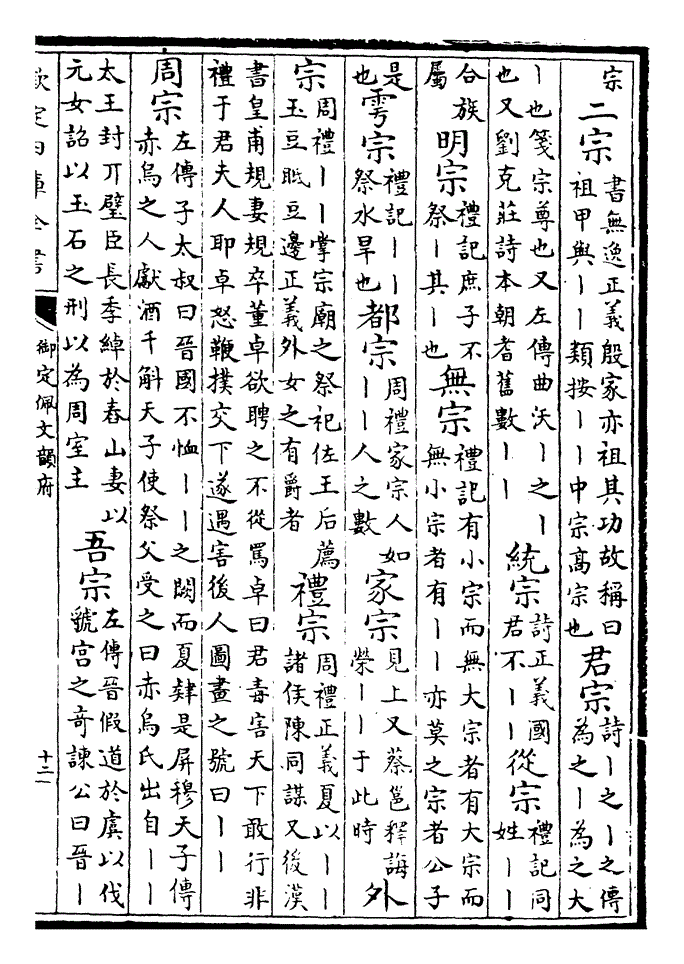 宗 二宗 書無逸正義殷家亦祖其功故稱曰祖甲與丨丨類按丨丨中宗高宗也 君宗 詩丨之丨之傳為之丨為之大
丨也箋宗尊也又左傳曲沃丨之丨也又劉克莊詩本朝耆舊數丨丨 統宗 詩正義國君不丨丨 從宗 禮記同姓丨丨
合族屬 明宗 禮記庶子不祭丨其丨也 無宗 禮記有小宗而無大宗者有大宗而無小宗者有丨丨亦莫之宗者公子
是也 雩宗 禮記丨丨祭水旱也 都宗 周禮家宗人如丨丨人之數 家宗 見上又蔡邕釋誨榮丨丨于此時 外
宗 周禮丨丨掌宗廟之祭祀佐王后薦玉豆眡豆邊正義外女之有爵者 禮宗 周禮正義夏以丨丨諸侯陳同謀又後漢
書皇甫規妻規卒董卓欲聘之不從罵卓曰君毒害天下敢行非禮于君夫人耶卓怒鞭撲交下遂遇害後人圖畫之號曰丨丨
周宗 左傳子太叔曰晉國不恤丨丨之闕而夏肄是屏穆天子傳赤烏之人獻酒千斛天子使祭父受之曰赤烏氏出自丨丨
太王封丌璧臣長季綽於舂山妻以元女詔以玉石之刑以為周室主 吾宗 左傳晉假道於虞以伐虢宫之奇諫公曰晉丨
欽定四庫全書
御定佩文韻府
十二